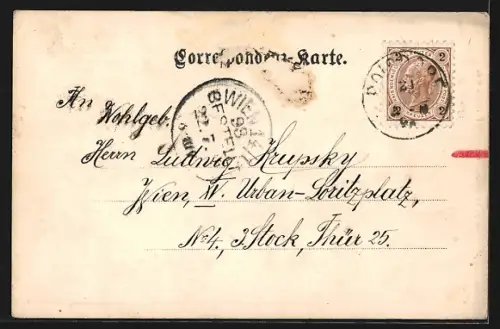 Correspondenz-Karte.
2 2
WIEN 14/1
98
BESTELLT
An Wohlgeb.
Herrn Ludwig Krupsky
Wien, XV. Urban-Loritzplatz,
No 4, 3. Stock, Thür 25.